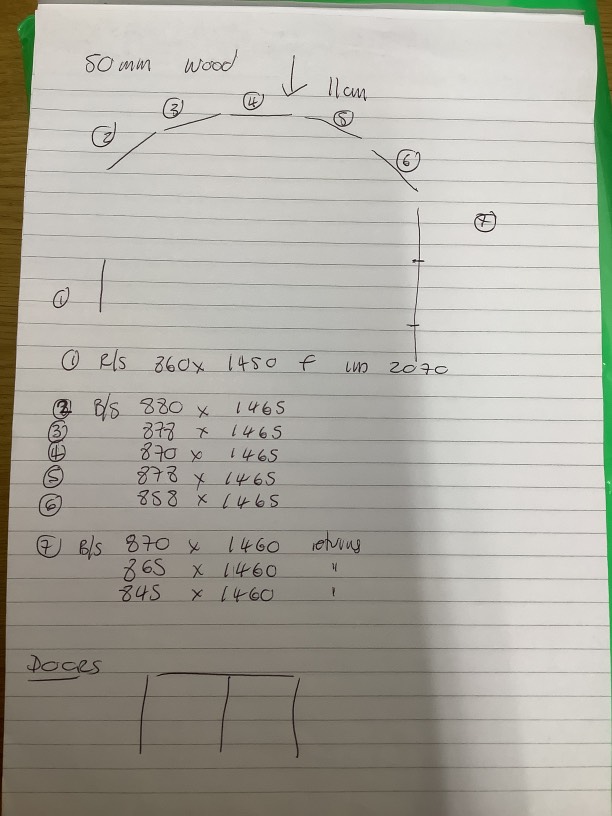 50mm wood
11cm
④
③
⑤
②
⑥
⑦
①
① R/S 860 x 1450 f un 2070
② B/S 880 x 1465
③ 878 x 1465
④ 870 x 1465
⑤ 878 x 1465
⑥ 858 x 1465
⑦ B/S 870 x 1460 returns
865 x 1460 "
845 x 1460 "
DOORS